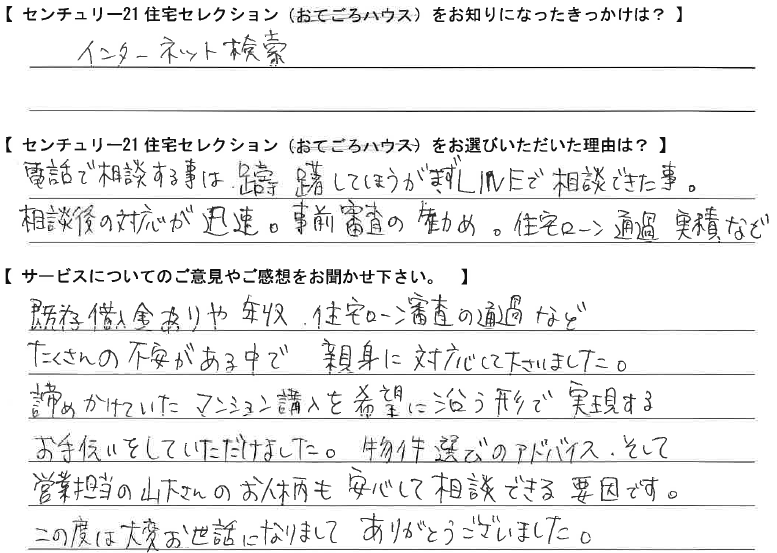 【 センチュリー21 住宅セレクション（おてごろハウス）をお知りになったきっかけは？ 】
インターネット検索
【 センチュリー21 住宅セレクション（おてごろハウス）をお選びいただいた理由は？ 】
電話で相談する事は 躊躇してしまうが まずLINEで相談できた事。
相談後の対応が迅速。事前審査の勧め。住宅ローン通過実積など
【 サービスについてのご意見やご感想をお聞かせ下さい。 】
既存借入金ありや年収、住宅ローン審査の通過など
たくさんの不安がある中で 親身に対応して下さいました。
諦めかけていたマンション購入を希望に沿う形で実現する
お手伝いをしていただけました。物件選びのアドバイス、そして
営業担当の山下さんのお人柄も安心して相談できる要因です。
この度は大変お世話になりまして ありがとうございました。